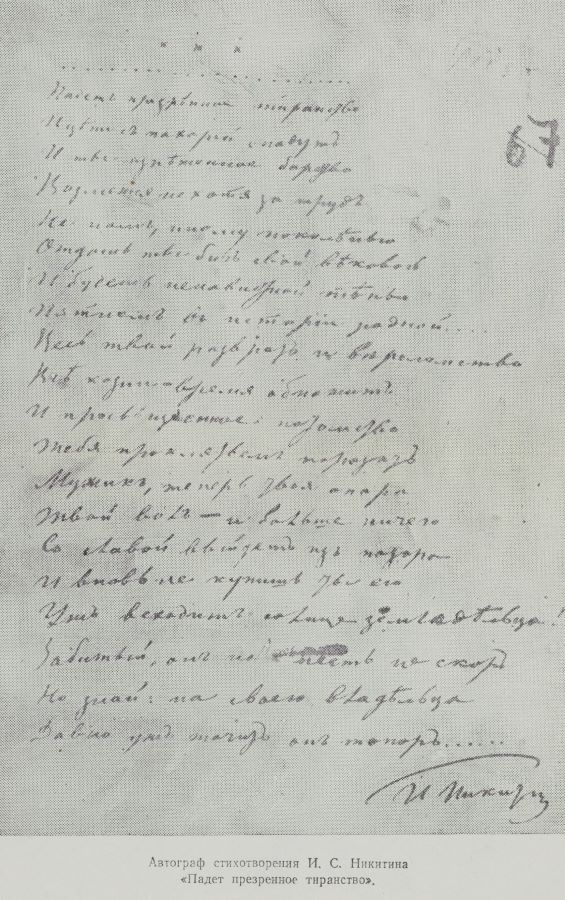 * * *
Падетъ презрѣнное тиранство
И цѣпи съ пахарей спадутъ
И ты изнѣженное барство
Возмешся нехотя за трудъ
Не намъ, иному поколѣнью
Отдашь ты бичъ свой вѣковой
И будешь ненавистной тѣнью
Пятномъ въ исторіи родной....
Весь твой развратъ и вѣроломство
Всѣ козни время обнажитъ
И просвѣщенное потомство
Тебя проклятьемъ поразитъ
Мужикъ, теперь твоя опора
Твой волъ — и больше ничего
Со славой выйдетъ изъ позора
И вновь не купишь ты его
Ужъ всходитъ солнце земледѣльца!
Забитый, онъ на месть не скоръ
Но знай: на своего владѣльца
Давно ужъ точитъ онъ топоръ......
И Никитин
67
Автограф стихотворения И. С. Никитина
«Падет презренное тиранство».